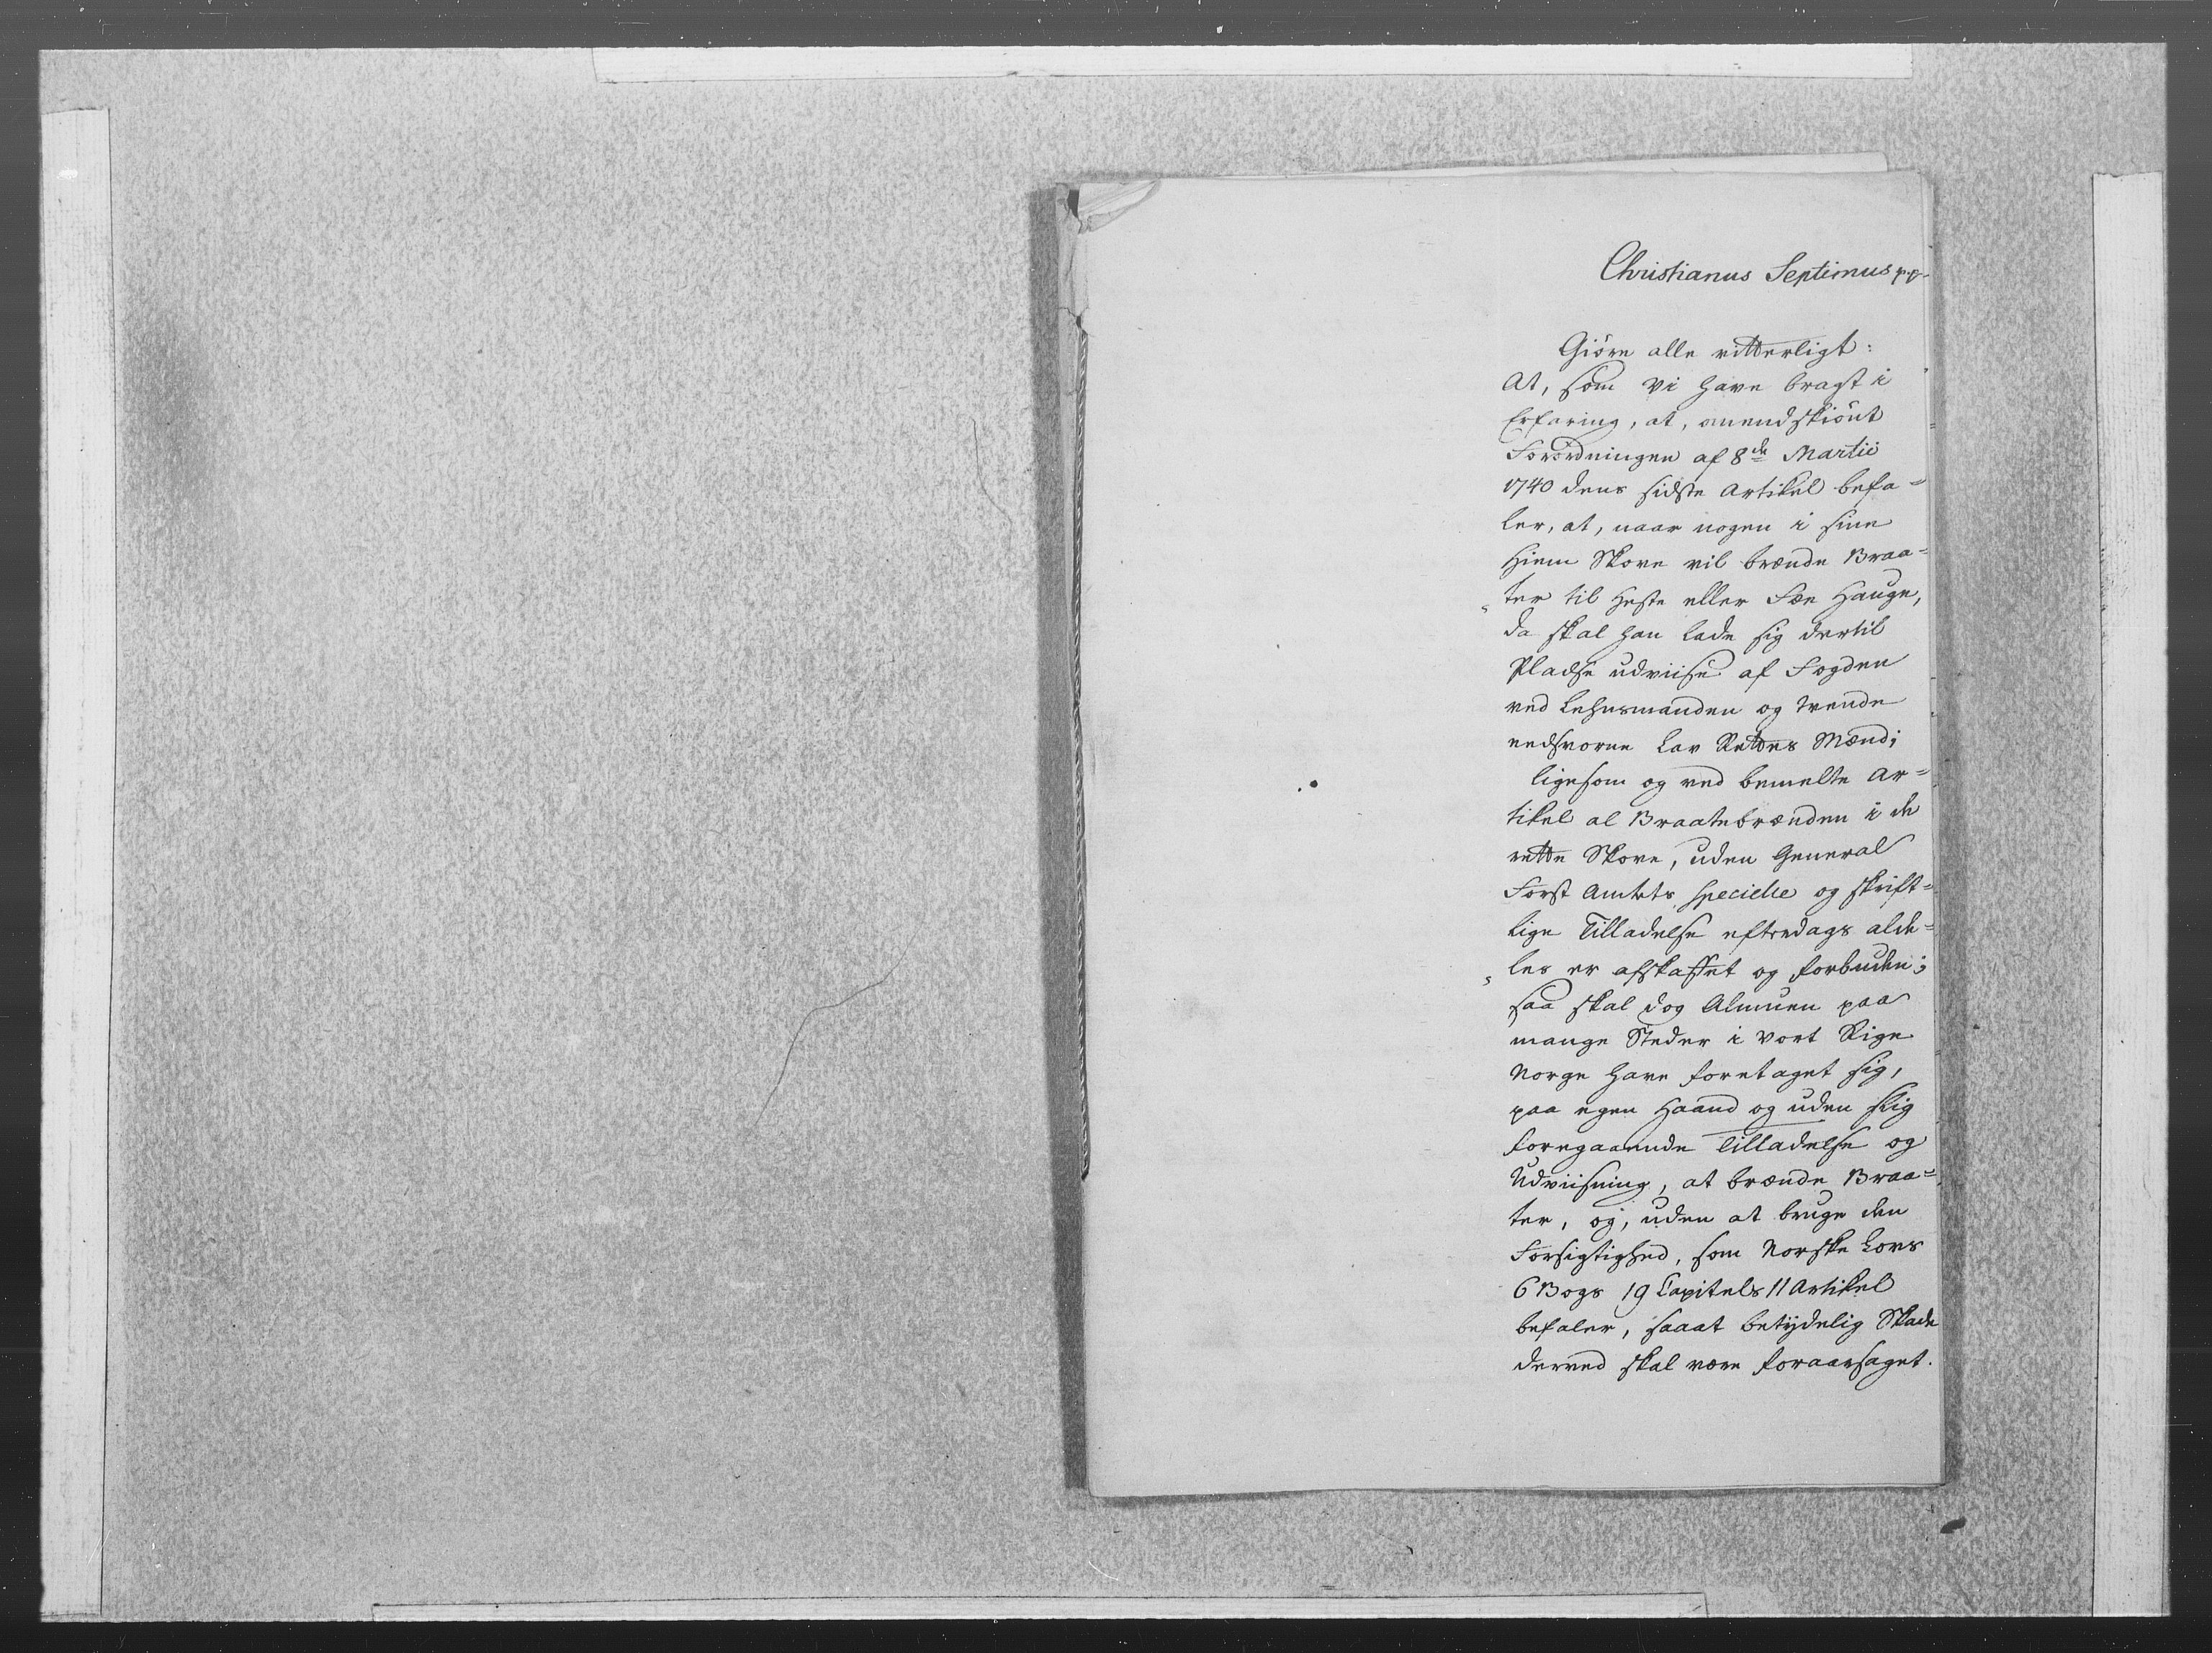 Christianus Septimus pp.
Giöre alle vitterligt:
At, som Vi have bragt i
Erfaring, at, anendskiönt
Forordningen af 8de Martii
1740 dens sidste Artikel befa=
ler, at, naar nogen i sine
Hiem Skove vil brænde Braa=
ter til Heste eller Fæe Hauge,
da skal han lade sig dertil
Pladse udviise af Fogden
ved Lehnsmanden og trende
eedsvorne Lav Rettes Mænd;
ligesom og ved bemelte Ar=
tikel al Braatebrænden i de
rette Skove, uden General
Forst Amtets specielle og skrift=
lige Tilladelse efterdags alde=
les er afskaffet og forbuden;
saa skal dog Almuen paa
mange Steder i Vort Rige
Norge have foretaget sig,
paa egen Haand og uden slig
foregaaende Tilladelse og
Udviisning, at brænde Braa=
ter, og, uden at bruge den
Forsigtighed, som Norske Lovs
6 Bogs 19 Capitels 11 Artikel
befaler, saaat betydelig Skade
derved skal være foraarsaget.